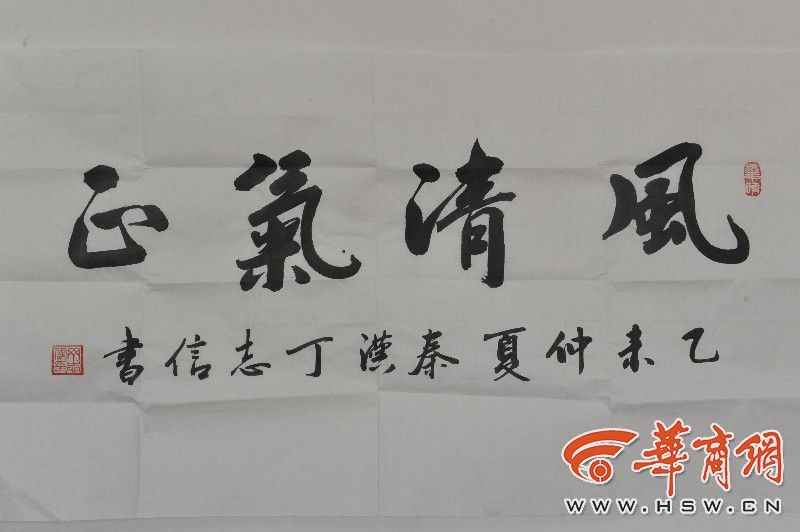 風清氣正
乙未仲夏秦漢丁志信書
華商網
WWW.HSW.CN